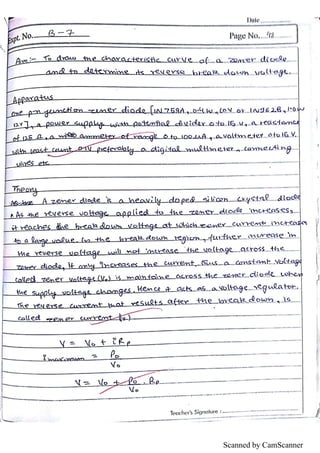 Date
Expt. No. B-7
Page No. 41
Aim:- To draw the characteristic curve of a zener diode
and to determine its reverse break down voltage.
Apparatus
one p-n junction zener diode [IN 758A, 0.4W, 10V or
a power supply with potential divider 0 to 15 V, a reactance
of 125 Ω, a ammeter of range 0 to 100 μA, a voltmeter 0 to 15 V
with least count 0.1V preferably a digital multimeter, connecting
wires etc
Theory
A zener diode is a heavily doped silicon crystal diode
• As the reverse voltage applied to the zener diode increases,
it reaches the break down voltage at which zener current increases
to a large value. In the break down region, further increase in
the reverse voltage will not increase the voltage across the
zener diode, it only increases the current, thus a constant voltage
called zener voltage (V₀) is maintaine across the zener diode when
the supply voltage changes. Hence it acts as a voltage regulator.
The reverse current that results after the break down, is
called zener current (
V = V₀ + iRₚ
i maximum = P₀
V₀
V = V₀ + P₀ . Rₚ
V₀
Teacher's Signature :
Scanned by CamScanner